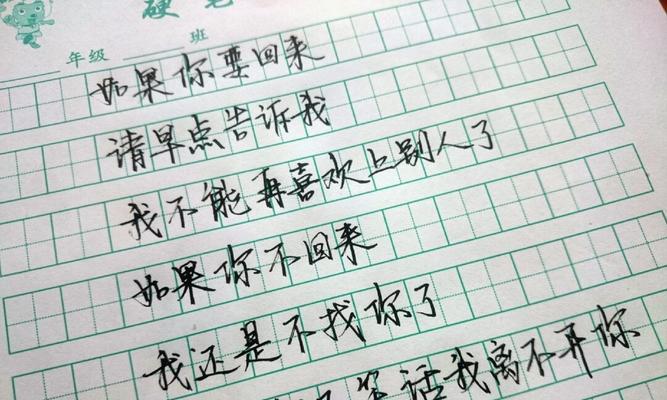 硬笔
年级 班
如果你要回来
请早点告诉我
我不能再喜欢上别人了
如果你不回来
我还是不找你了
话我离不开你